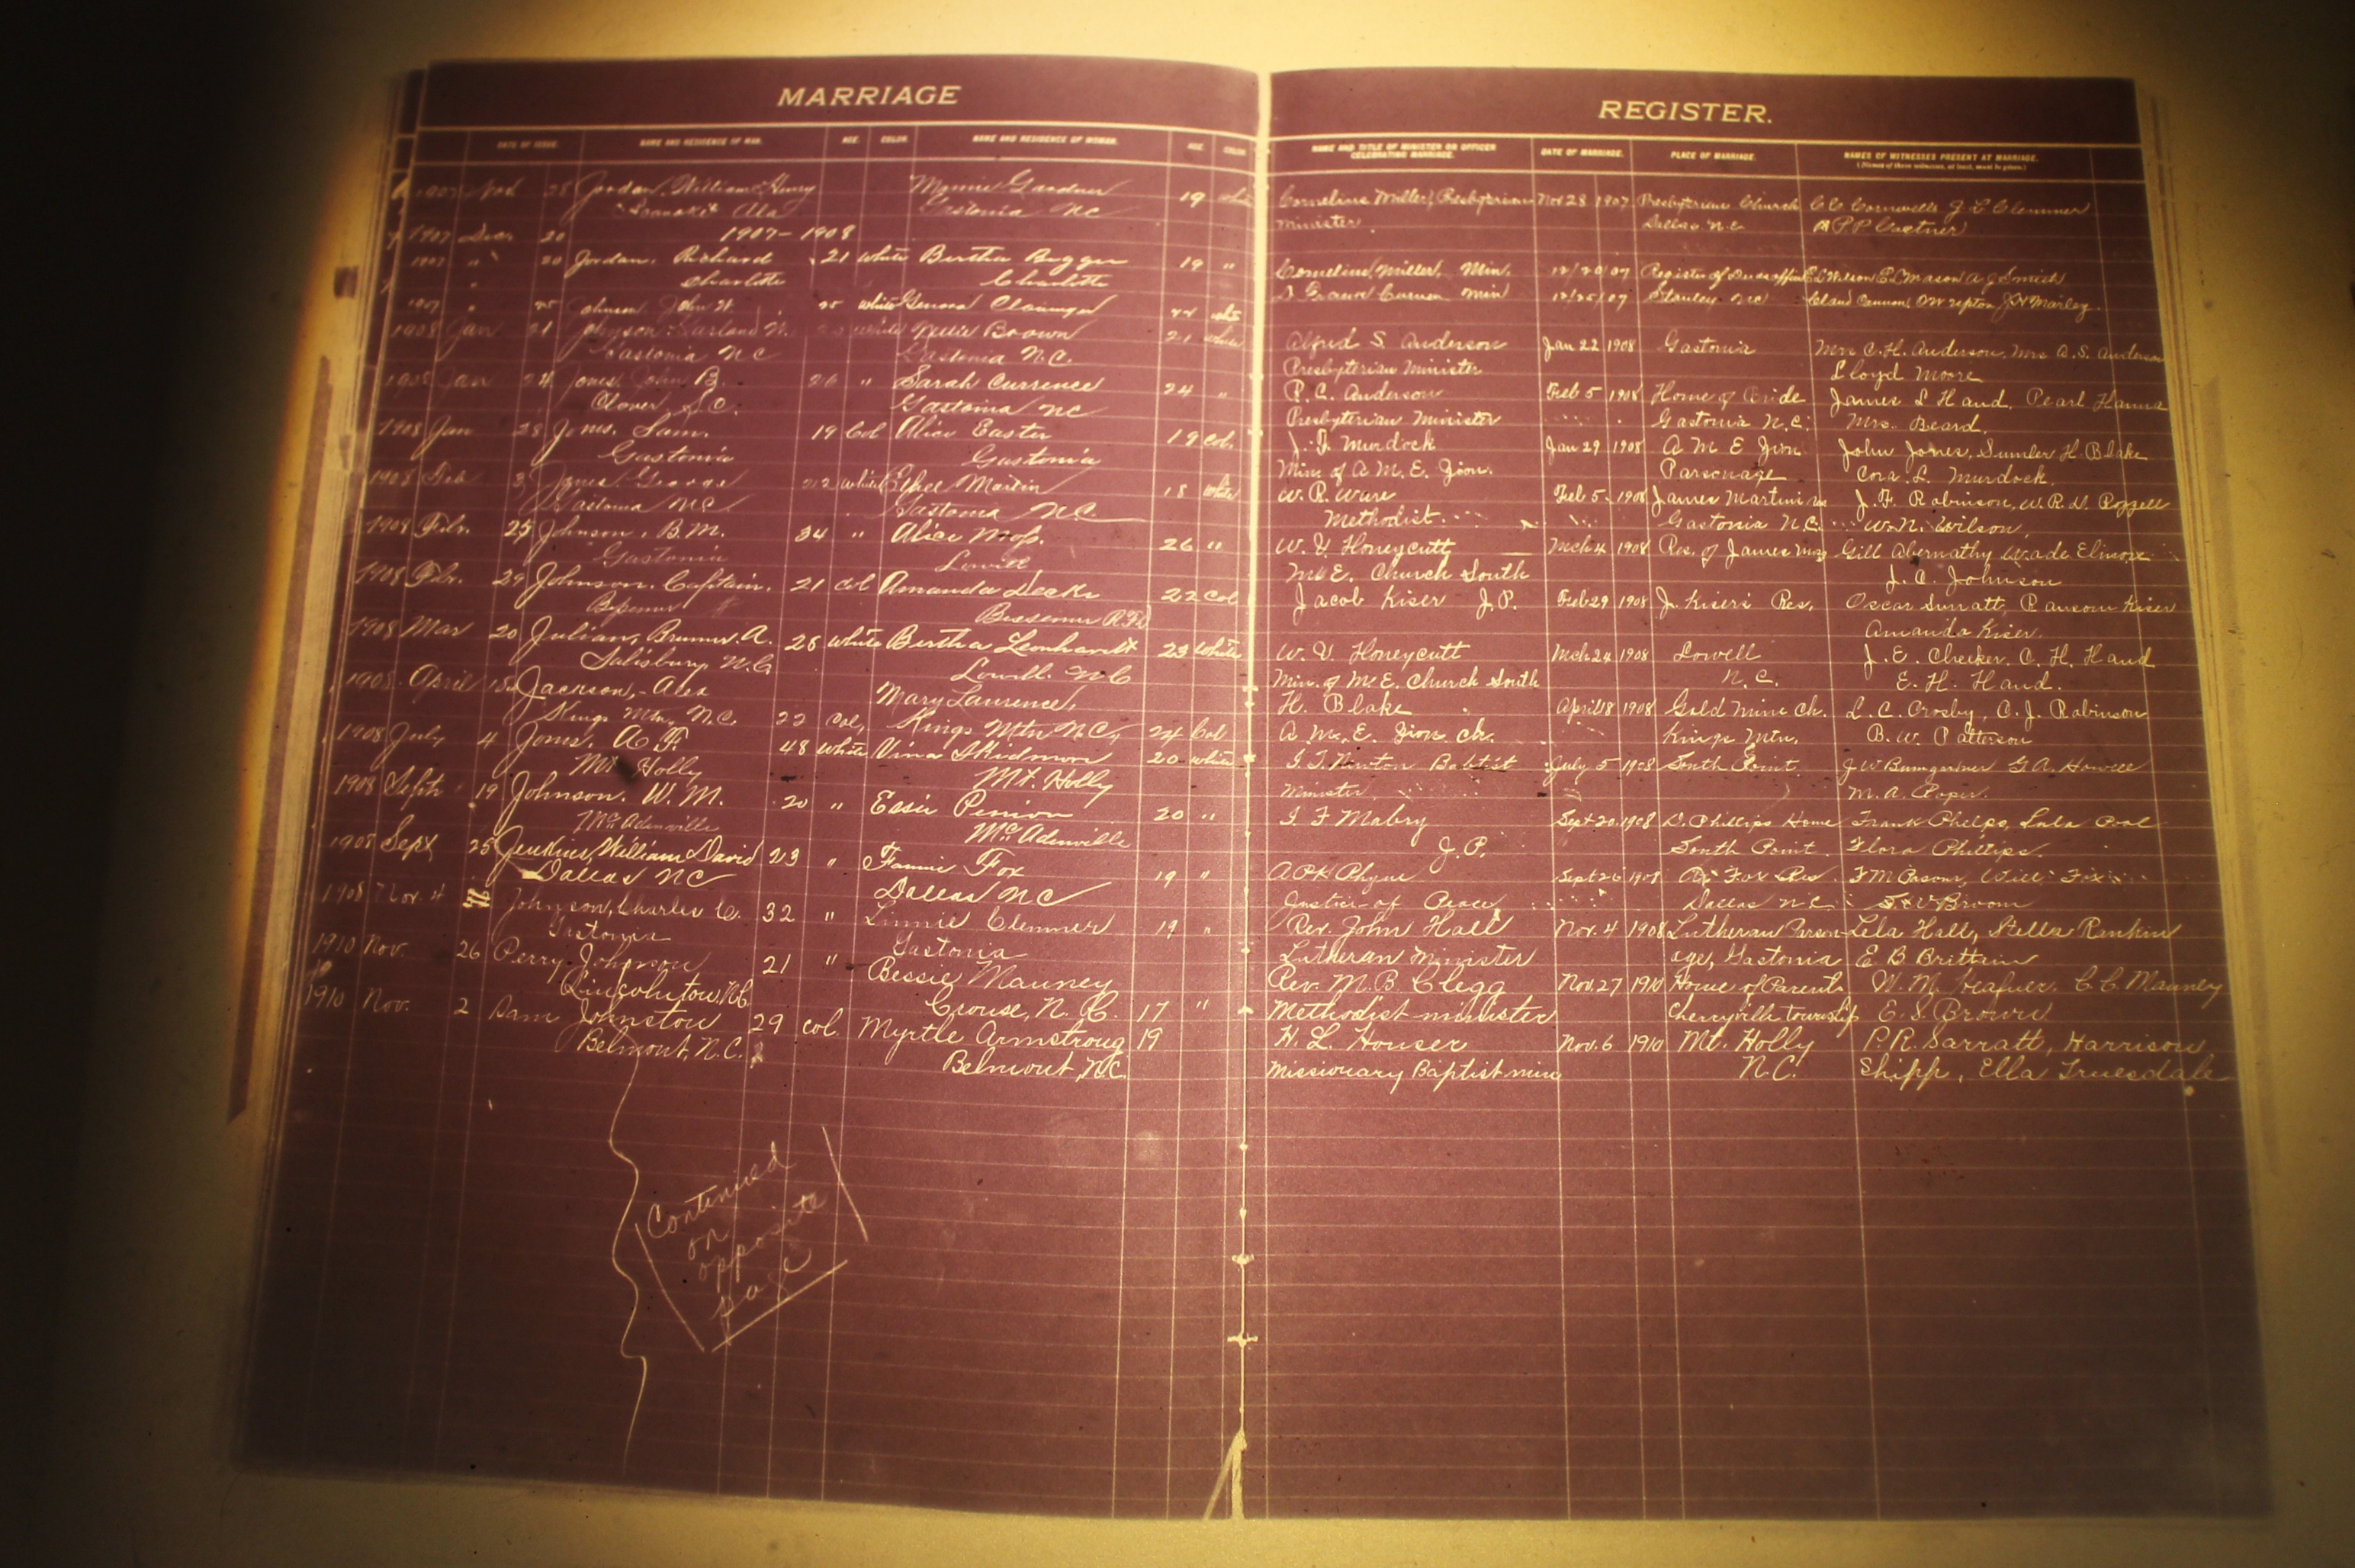 MARRIAGE
DATE OF ISSUE. NAME AND RESIDENCE OF MAN. AGE. COLOR. NAME AND RESIDENCE OF WOMAN. AGE. COLOR
1907 Nov 28 Jordan, William Henry Mamie Gardner 19 white
Ala Gastonia NC
1907 Dec 20 1907-1908
1907 " 20 Jordan. Richard 21 white Bertha Bigger 19 "
Charlotte Charlotte
1907 " 25 Johnson John H. 25 white Genora Cloninger 22 white
1908 Jan 21 Johnson Garland 23 white Nellie Brown 21 white
Gastonia NC Gastonia N.C.
1908 Jan 24 Jones. John B. 26 " Sarah Currence 24 "
Clover S.C. Gastonia NC
1908 Jan 28 Jones. Sam. 19 Col Alice Easter 19 col.
Gastonia Gastonia
1908 Feb 3 Jones George 22 white Ethel Martin 18 white
Gastonia NC Gastonia N.C.
1908 Feb. 25 Johnson, B.M. 34 " Alice Moss. 26 "
Gastonia Lowell
1908 Feb. 29 Johnson. Captain. 21 col Amanda 22 col
Bessemer Bessemer R.F.D
1908 Mar 20 Julian, A. 28 white Bertha Leonhardt 23 white
Salisbury N.C. Lowell. N.C
1908. April 18 Jackson, - Alex Mary Laurence,
Kings Mtn, N.C. 22 Col, Kings Mtn N.C, 24 Col
1908 July 4 Jones. A F. 48 white Vina Skidmore 20 white
Mt Holly Mt. Holly
1908 Sept 19 Johnson. W. M. 20 " Essie Penion 20 "
McAdenville McAdenville
1908 Sept 25 Jenkins, William David 23 " Fannie Fox 19 "
Dallas NC Dallas NC
1908 Nov. 4 Johnson, Charles C. 32 " Linnie Clemmer 19 "
Gastonia Gastonia
1910 Nov. 26 Perry Johnson 21 " Bessie Mauney
Lincolnton, N.C. Crouse, N.C. 17 "
1910 Nov. 2 Sam Johnston 29 col. Myrtle Armstrong 19
Belmont, N.C. Belmont, N.C.
Continued
on
opposite
page
REGISTER.
NAME AND TITLE OF MINISTER OR OFFICER CELEBRATING MARRIAGE. DATE OF MARRIAGE. PLACE OF MARRIAGE. NAMES OF WITNESSES PRESENT AT MARRIAGE.
(Names of three witnesses, at least, must be given.)
Cornelius Miller, Presbyterian Nov 28 1907 Presbyterian Church C C Cornwell J L Clemmer
Minister Dallas N.C P P Costner
Cornelius Miller, Min. 12/20/07 Register of Deeds office E L Wilson E L Mason A J Smith
Min 12/25/07 Stanley NC Marley
Alfred S. Anderson Jan 22 1908 Gastonia Mrs C.H. Anderson, Mrs A.S. Anderson
Presbyterian Minister Lloyd Moore
P. C. Anderson Feb 5 1908 Home of Bride James L Hand. Pearl Hanna
Presbyterian Minister Gastonia N.C. Mrs. Beard.
J. F. Murdock Jan 29 1908 A M E Zion John Jones, Sumler H. Blake
Min. of A M. E. Zion. Parsonage Cora L. Murdock.
W. R. Ware Feb 5. 1908 James Martin J. F. Robinson, W. R. D. Rozzell
Methodist. Gastonia N.C. W. N. Wilson,
W. V. Honeycutt Mch 4 1908 Res. of James Moss Gill Abernathy Wade Elmore
M E. Church South J. C. Johnson
Jacob Kiser J.P. Feb 29 1908 J. Kisers Res. Oscar Surratt, Ransom Kiser
Amanda Kiser.
W. V. Honeycutt Mch 24 1908 Lowell J. E. C. H. Hand
Min. of M E. Church South N. C. E. H. Hand.
H. Blake April 18 1908 Gold Mine Ch. L. C. Crosby, C. J. Robinson
A M. E. Zion Ch. Kings Mtn. B. W. Patterson
Baptist July 5 1908 South Point. J W Bumgardner G. A. Howell
Minister M. A. Roper.
I F Mabry Sept 20. 1908 D. Phillips Home Frank Phelps, Lula Pool
J. P. South Point. Flora Phillips.
A P K Rhyne Sept 26 1908 Fox Res F M Parsons, Will Fox
Justice of Peace Dallas N.C. Broom
Rev. John Hall Nov. 4 1908 Lutheran Parson- Lela Hall, Stella Rankin
Lutheran Minister age, Gastonia E B Brittain
Rev. M. B. Clegg Nov. 27 1910 Home of Parents W. M. Heafner. C. C. Mauney
Methodist minister Cherryville township E. S. Brown
H. L. Houser Nov. 6 1910 Mt. Holly P. R. Sarratt, Harrison
Missionary Baptist min N.C. Shipp, Ella Truesdale